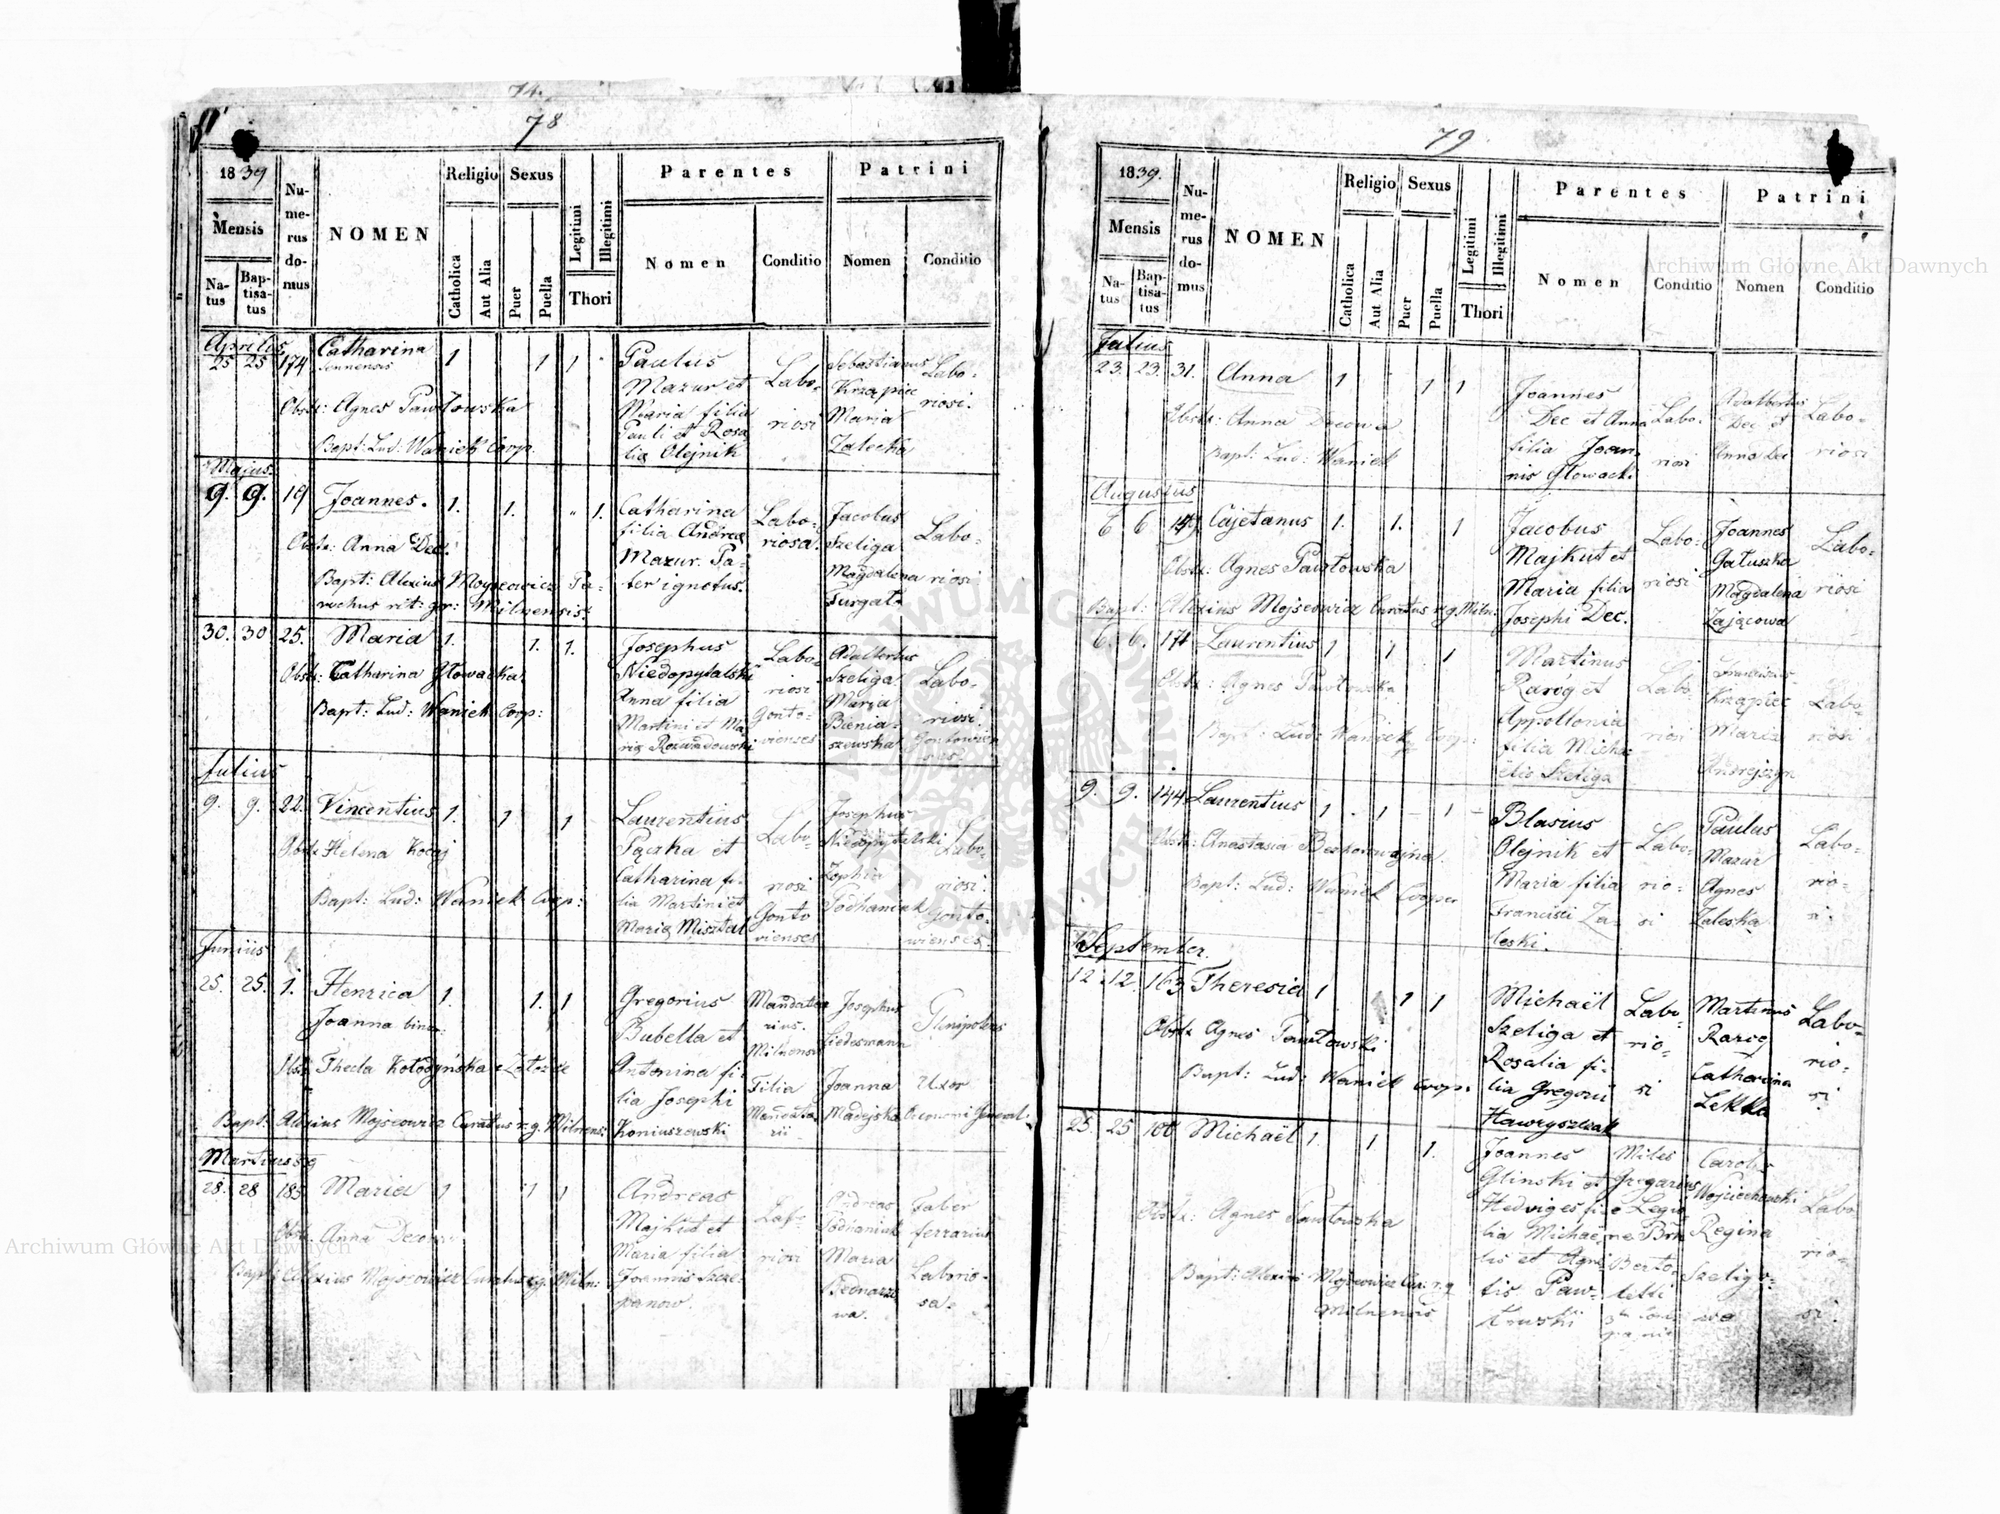 74.
78
1839
Mensis
Na-
tus
Bap-
tisa-
tus
Nu-
me-
rus
do-
mus
NOMEN
Religio
Catholica
Aut Alia
Sexus
Puer
Puella
Legitimi
Illegitimi
Thori
Parentes
Nomen
Conditio
Patrini
Nomen
Conditio
Aprilis
25 25 174 Catharina 1 1 1
Obst: Agnes Pawłowska
Bapt: Lud: Waniek Coop.
Paulus
Mazur et
Maria filia
Pauli et Rosa
lia Olejnik
Labo-
riosi
Sebastianus
Krząpiec
Maria
Zalecka
Labo-
riosi.
Majus.
9. 9. 19 Joannes. 1. 1. 1.
Obst: Anna Dec.
Bapt: Alexius Moyseowicz Pa-
rochus rit: gr: Milnensis.
Catharina
filia Andreæ
Mazur. Pa-
ter ignotus.
Labo-
riosa.
Jacobus
Szeliga
Magdalena
Furgat
Labo-
riosi
30. 30 25. Maria 1. 1. 1.
Obst: Catharina Głowacka
Bapt: Lud: Waniek Coop:
Josephus
Niedopytalski
Anna filia
Martini et Ma
ria Rozwadowski
Labo-
riosi
Gonto-
vienses
Adalbertus
Szeliga
Maria
Bienia-
szewska
Labo-
riosi.
Gontowien
ses.
Julius
9. 9. 22. Vincentius 1. 1 1
Obst: Helena Kocaj
Bapt: Lud: Waniek Coop:
Laurentius
Pączka et
Catharina fi-
lia Martini et
Maria Misztal
Labo-
riosi
Gonto
vienses
Josephus
Niedopytalski
Zophia
Podhaniak
Labo-
riosi.
Gonto-
wienses.
Junius
25. 25. 1. Henrica 1. 1. 1
Joanna bino:
Obst: Thecla Kołodyńska e Załoźce
Bapt: Alexius Mojseowicz Curatus r. g. Milnens:
Gregorius
Bubella et
Antonina fi-
lia Josephi
Koniuszewski
Mandata
rius.
Milnensis
Filia
Mandata-
rii
Josephus
Liedesmann
Joanna
Madejska
Plenipotens
Uxor
Oeconomi General.
Martius
28. 28 185 Maria 1 1 1
Obst. Anna Decowa
Bapt: Alexius Mojseowicz Curatus r.g. Miln:
Andreas
Majkut et
Maria filia
Joannis Szcze-
panow.
Lab-
riosi
Andreas
Podhaniak
Maria
Bednarze
wa.
Faber
ferrarius
Laborio-
sa.
79
1839.
Mensis
Na-
tus
Bap-
tisa-
tus
Nu-
me-
rus
do-
mus
NOMEN
Religio
Catholica
Aut Alia
Sexus
Puer
Puella
Legitimi
Illegitimi
Thori
Parentes
Nomen
Conditio
Patrini
Nomen
Conditio
Julius
23. 23. 31. Anna 1 1 1
Obst: Anna Decowa
Bapt: Lud: Waniek
Joannes
Dec et Anna
filia Joan-
nis Głowack.
Labo-
riosi
Adalbertus
Dec et
Anna Dec
Labo-
riosi
Augustus
6 6 Cajetanus 1. 1. 1
Obst: Agnes Pawłowska
Bapt: Alexius Mojseowicz Curatus r.g. Miln:
Jacobus
Majkut et
Maria filia
Josephi Dec.
Labo-
riosi
Joannes
Gałuszka
Magdalena
Zającowa
Labo-
riosi
6. 6. 174 Laurentius 1 1 1
Obst: Agnes Pawłowska
Bapt: Lud: Waniek Coop:
Martinus
Raróg et
Appollonia
filia Micha-
elis Szeliga
Labo-
riosi
Krząpiec
Maria
Andrejczyn
Labo-
riosi
9. 9. 144 Laurentius 1 1 1
Obst: Anastasia Bezkorowajna.
Bapt: Lud: Waniek Cooper
Blasius
Olejnik et
Maria filia
Francisci Za-
leski.
Labo-
rio-
si
Paulus
Mazur
Agnes
Zaleska
Labo-
rio-
si.
September.
12. 12. 163 Theresia 1 1 1
Obst: Agnes Pawłowski
Bapt: Lud: Waniek Coop.
Michaël
Szeliga et
Rosalia fi-
lia Gregorii
Hawryszczak
Labo-
rio-
si
Martinus
Raróg
Catharina
Lekka
Labo-
rio-
si.
25. 25 Michaël 1. 1 1.
Obst: Agnes Pawłowska
Bapt: Alexius Mojseowicz Cur. r. g.
Milnensis
Joannes
Glinski et
Hedviges fi-
lia Michae-
lis et Agne
tis Paw-
łowski
Miles
Gregarius
e Legio
ne Brh
Berto-
letti
Carolus
Wojciechowski
Regina
Szeligo-
wa
Labo
rio-
si.
Archiwum Główne Akt Dawnych
Archiwum Główne Akt Dawnych
ARCHIWUM GŁÓWNE AKT DAWNYCH